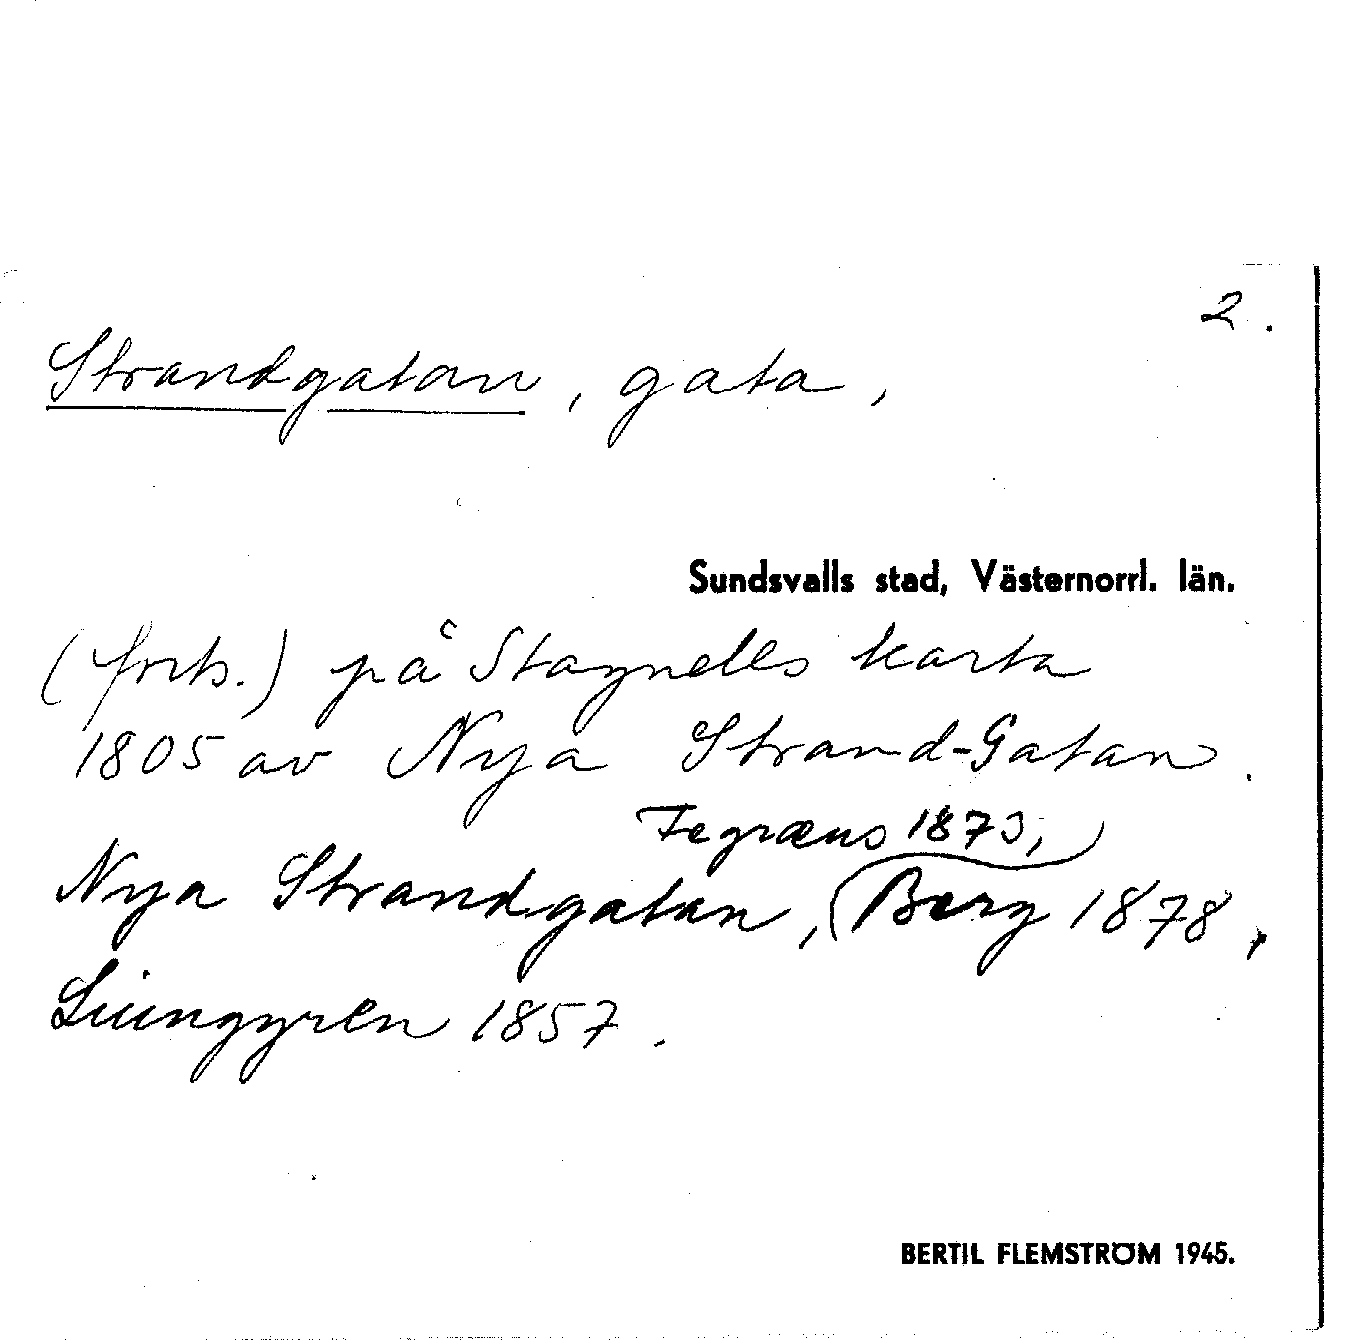 2.
Strandgatan, gata,
Sundsvalls stad, Västernorrl. län.
(forts.) på Stagnells karta
1805 av Nya Strand-Gatan.
1873,
Nya Strandgatan, Berg 1878,
Ljunggren 1857.
BERTIL FLEMSTRÖM 1945.